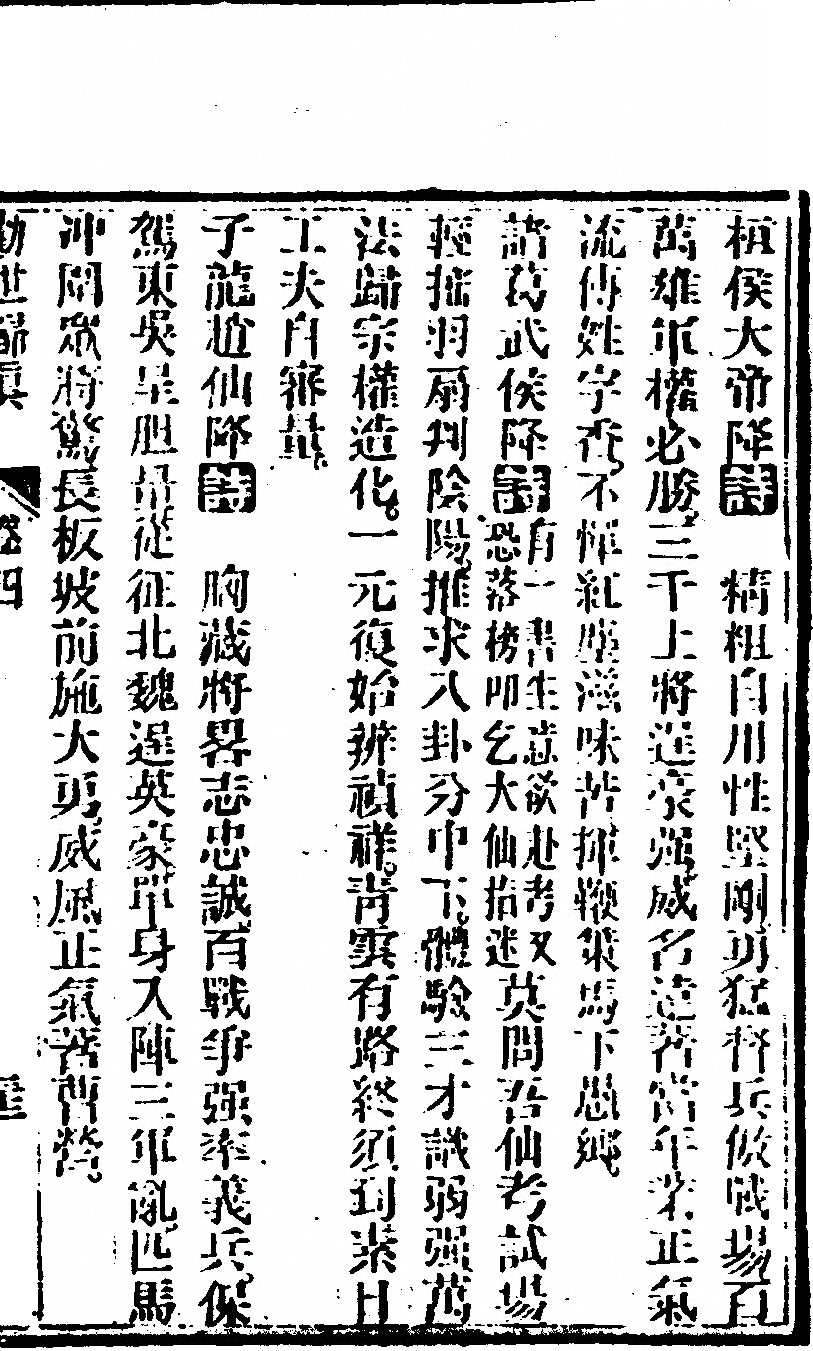 桓侯大帝降詩　精粗自用性堅剛勇猛督兵倣戰場百
萬雄軍權必勝三千上將逞豪强威名遠著當年業正氣
流傳姓字香不憚紅塵滋味苦揮鞭策馬下愚鄉
諸葛武侯降詩有一書生意欲赴考又恐落榜叩乞大仙指迷莫問吾仙考試場
輕搖羽扇判陰陽推求八卦分中下體驗三才識弱强萬
法歸宗權造化一元復始辨禎祥青雲有路終須到素日
工夫自審量
子龍趙仙降詩　胸藏將畧志忠誠百戰爭强率義兵保
駕東吳呈胆量從征北魏逞英豪單身入陣三軍亂匹馬
沖關眾將驚長板坡前施大勇威風正氣著曹營
勸世歸真　卷四